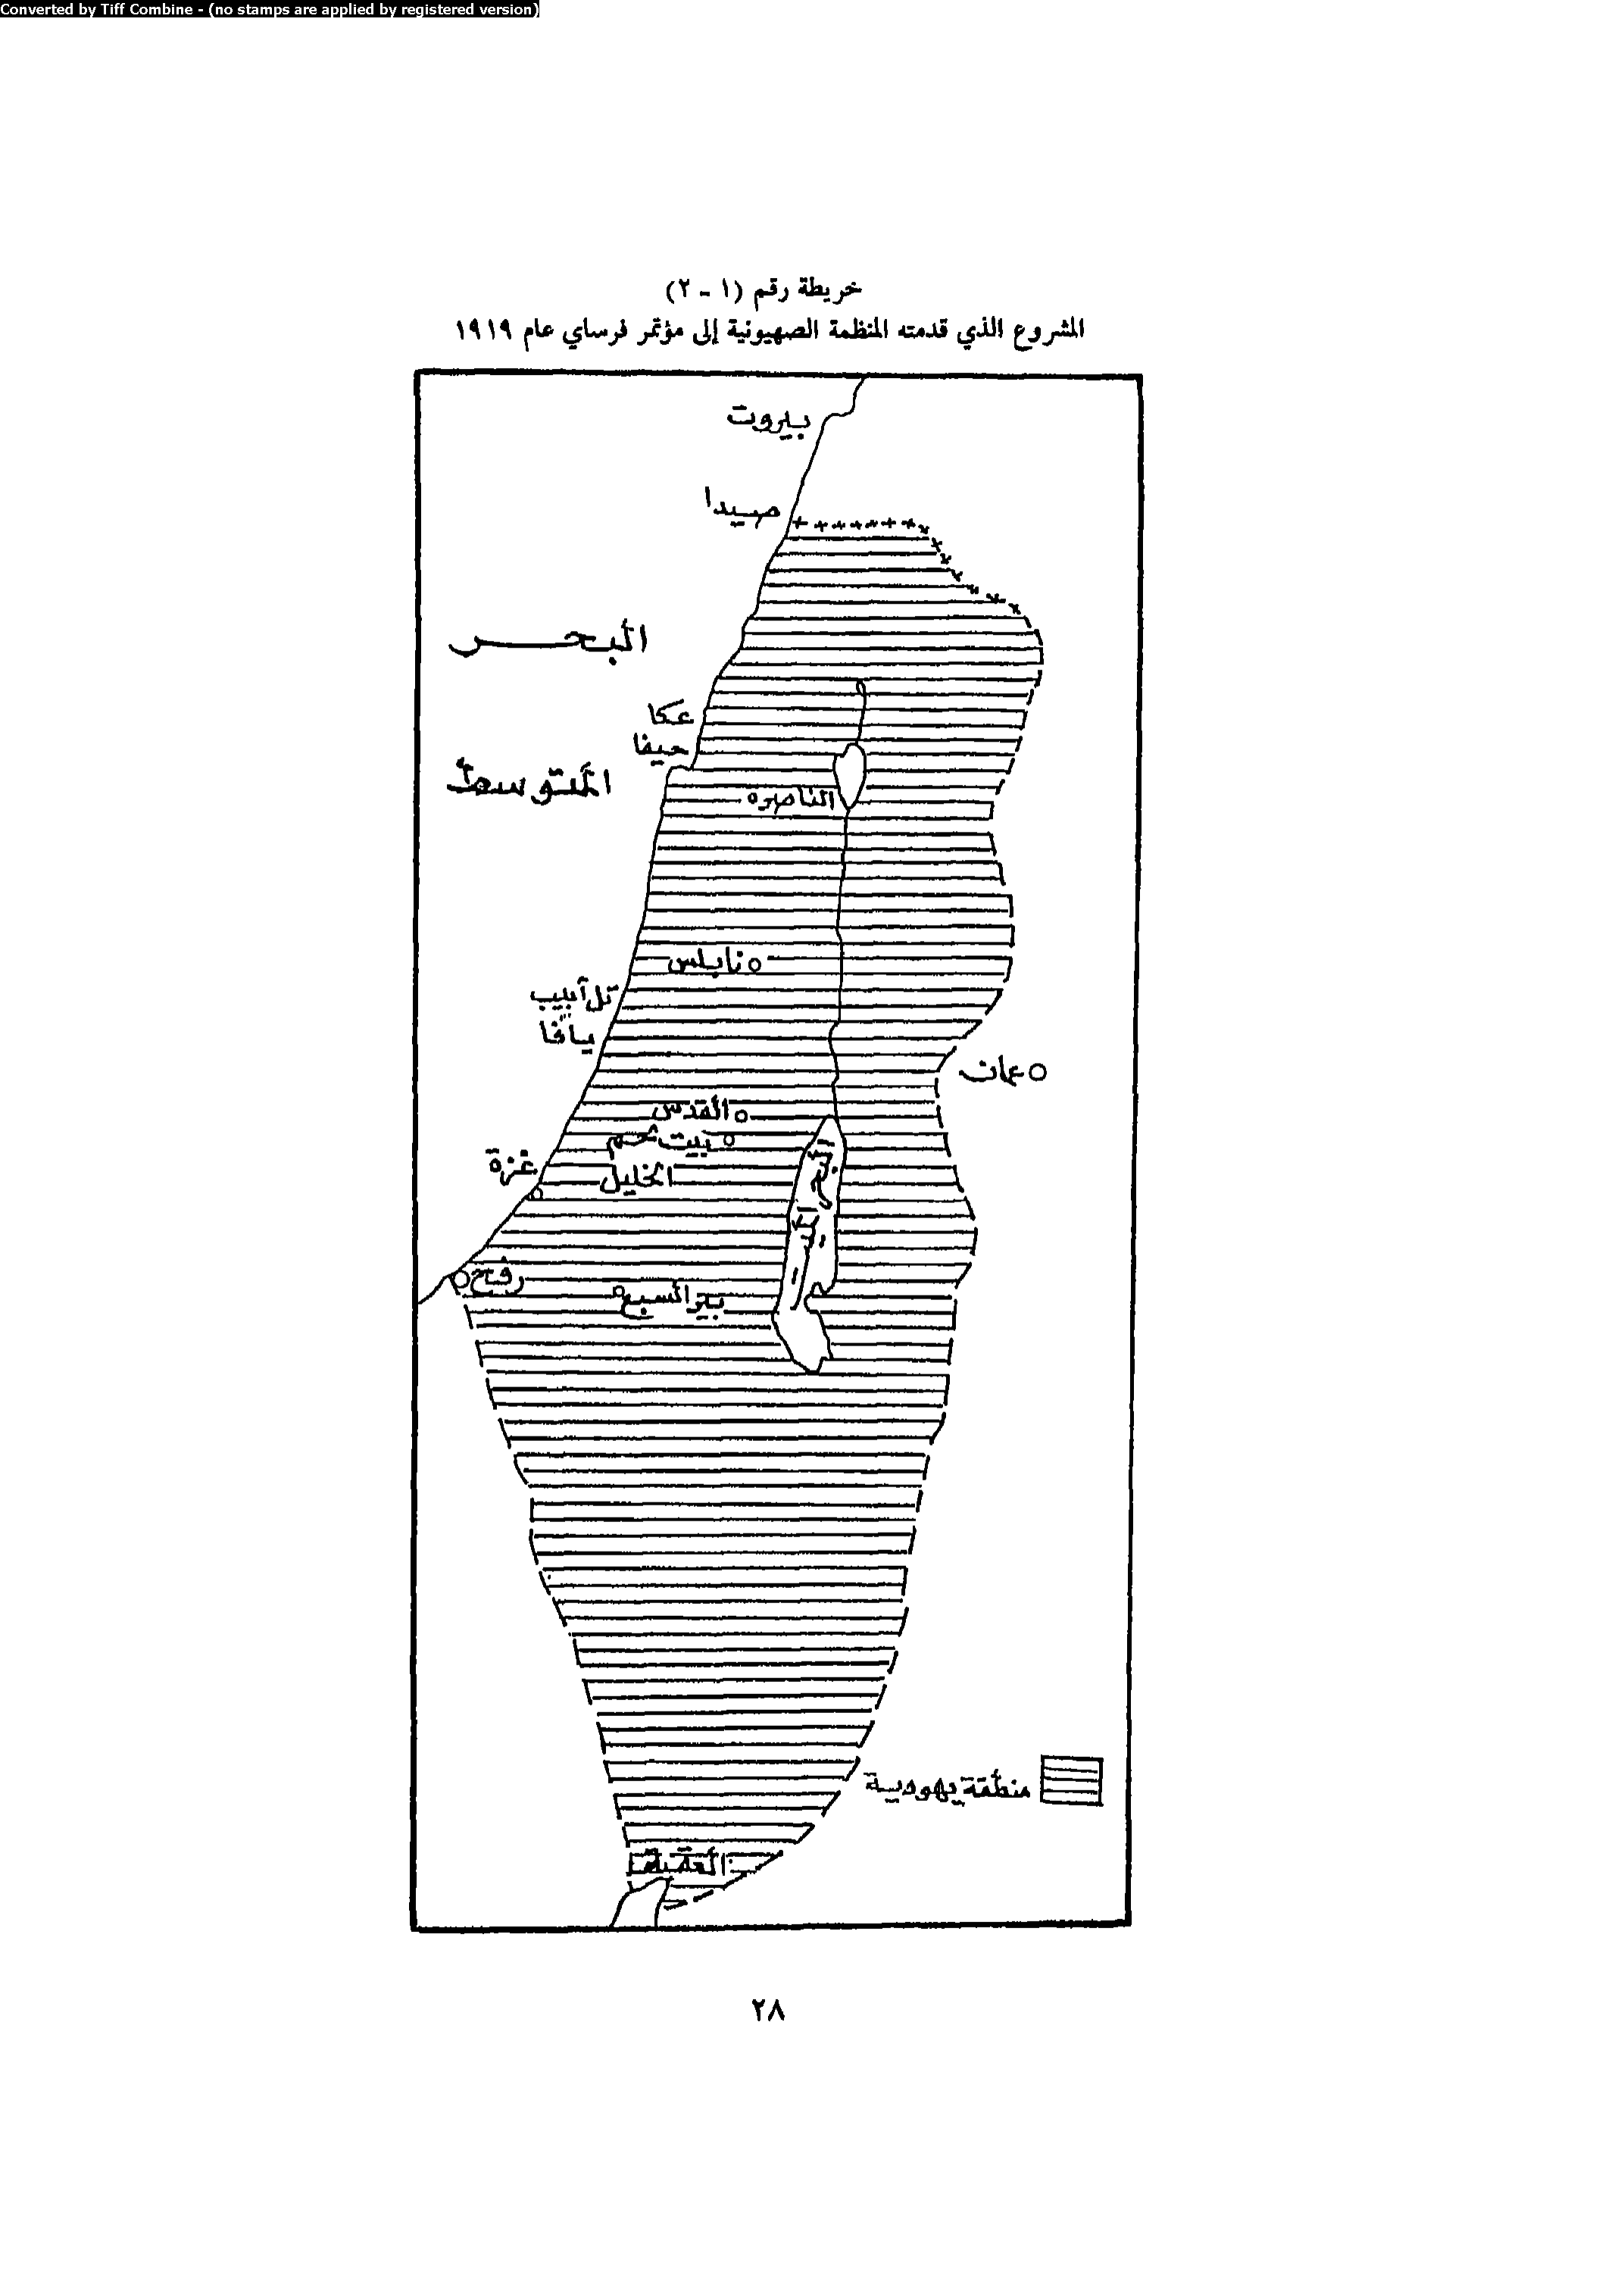 Converted by Tiff Combine - (no stamps are applied by registered version)
خريطة رقم (١ - ٢)
المشروع الذي قدمته المنظمة الصهيونية إلى مؤتمر فرساي عام ١٩١٩
بيروت
صيدا
البحر
عكا
حيفا
المتوسط
الناصره
نابلس
تل أبيب
يافا
عمان
القدس
بيت لحم
غزة
الخليل
البحر الميت
رفح
بئر السبع
منطقة يهودية
العقبة
٢٨